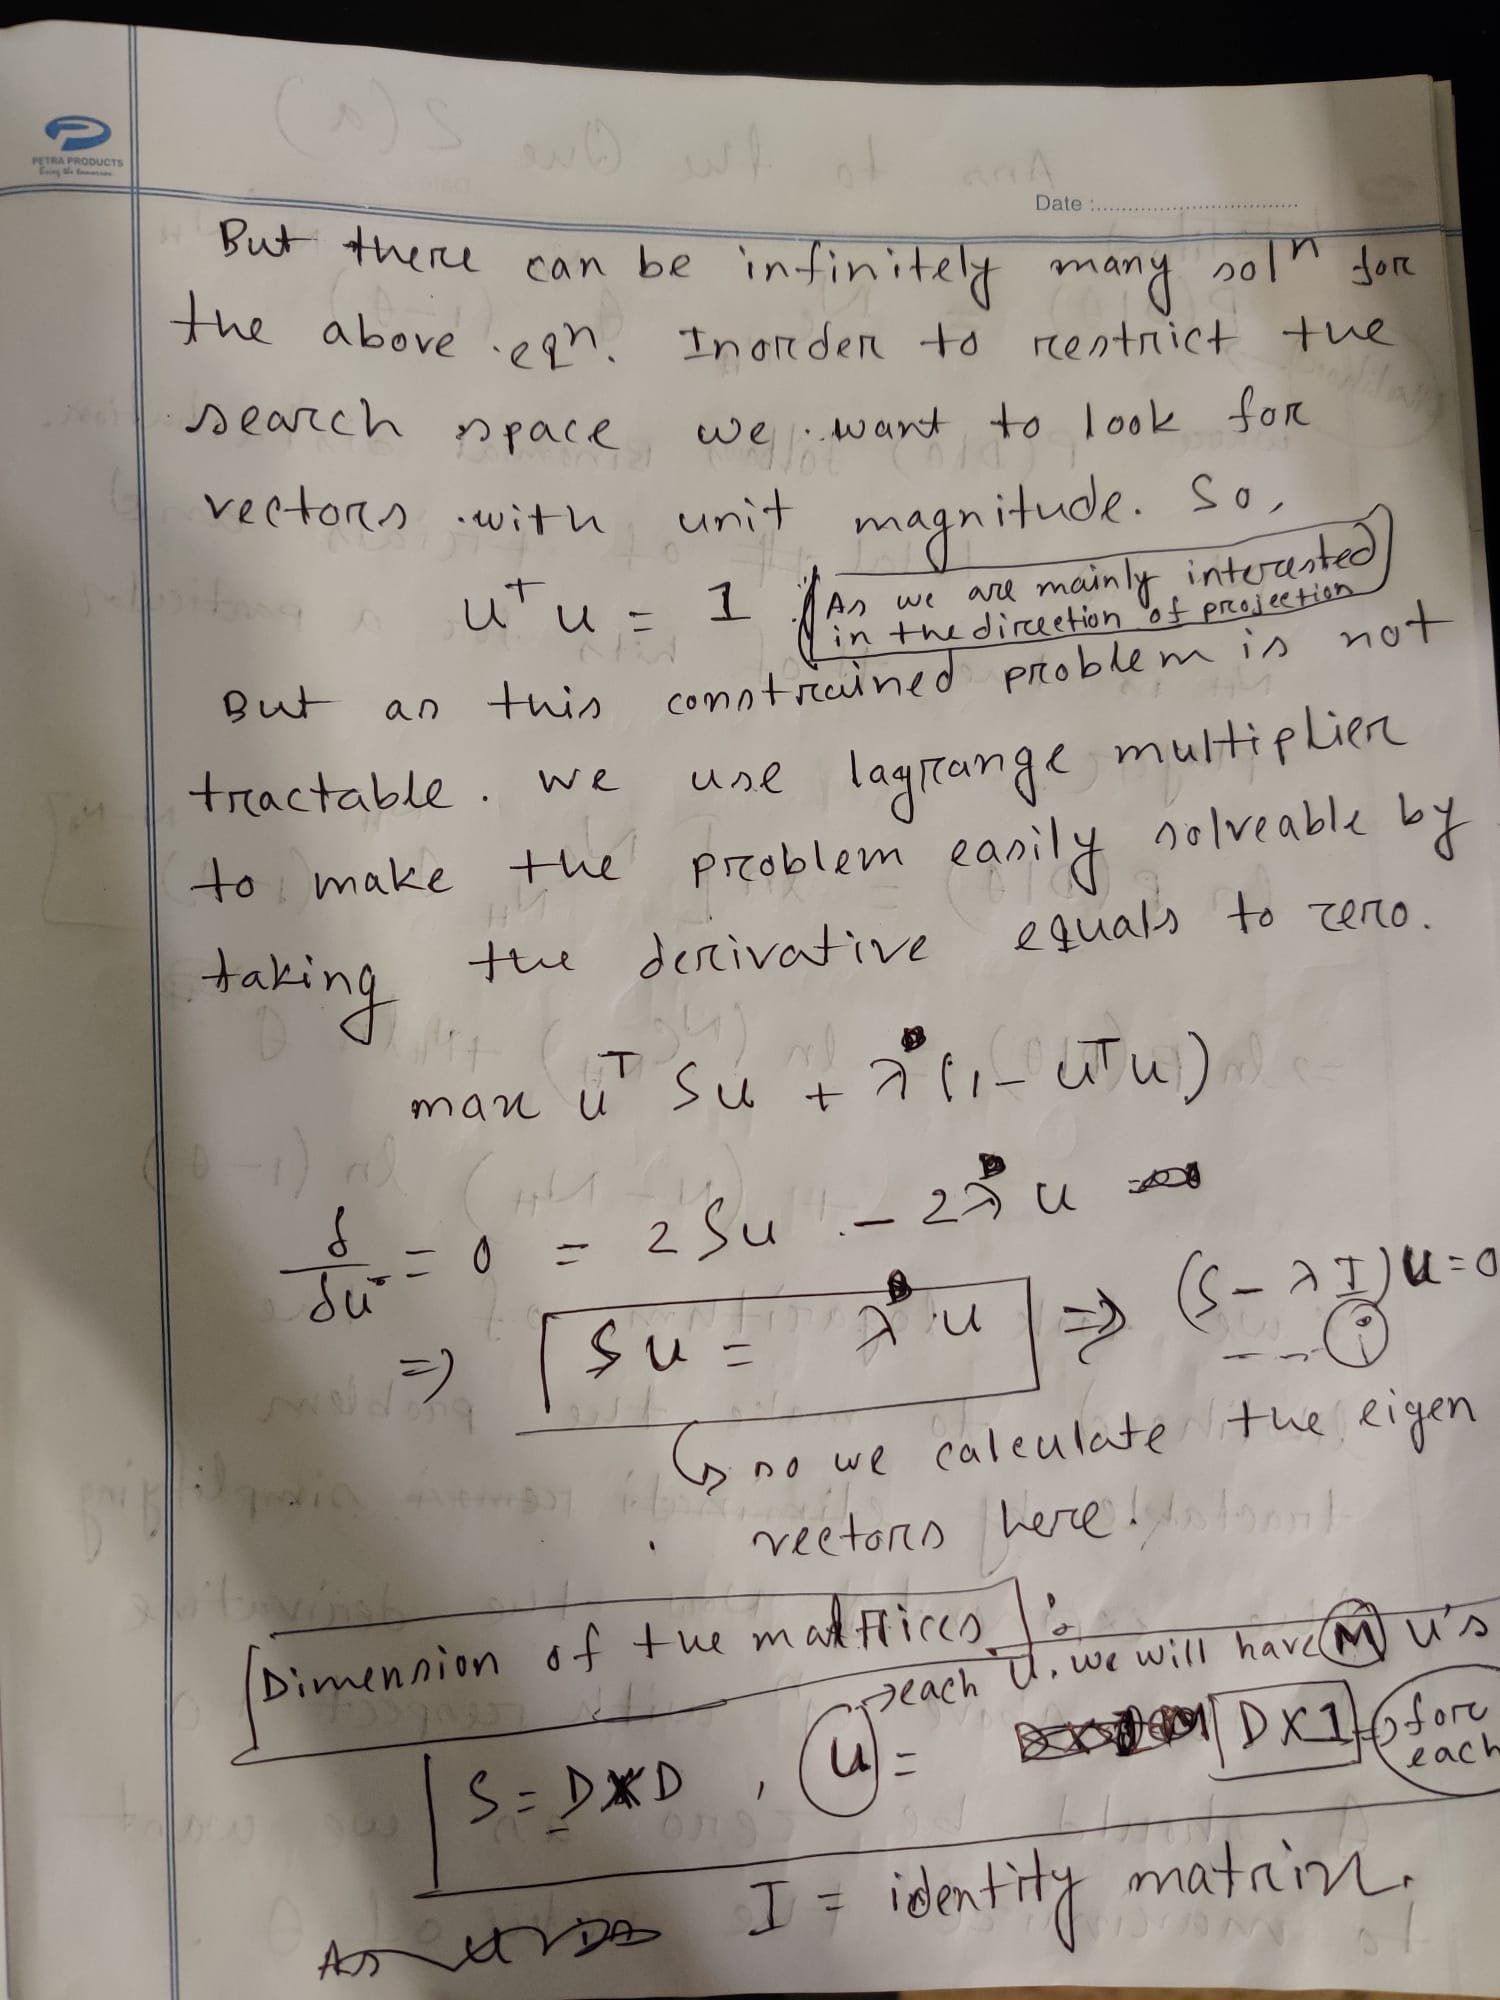 PETRA PRODUCTS
Date :
But there can be infinitely many solⁿ for
the above eqn. Inorder to restrict the
search space we want to look for
vectors with unit magnitude. So,
uᵀu = 1 As we are mainly interested
in the direction of projection
But as this constrained problem is not
tractable. we use lagrange multiplier
to make the problem easily solveable by
taking the derivative equals to zero.
max uᵀSu + λ(1 - uᵀu)
δ/δu = 0 = 2Su - 2λu
=> Su = λu => (S - λI)u = 0
i
↳ so we calculate the eigen
vectors here!
Dimension of the matrices :
→ each u. we will have M u's
S = D×D , u = D×1 → for
each
I = identity matrix.
As